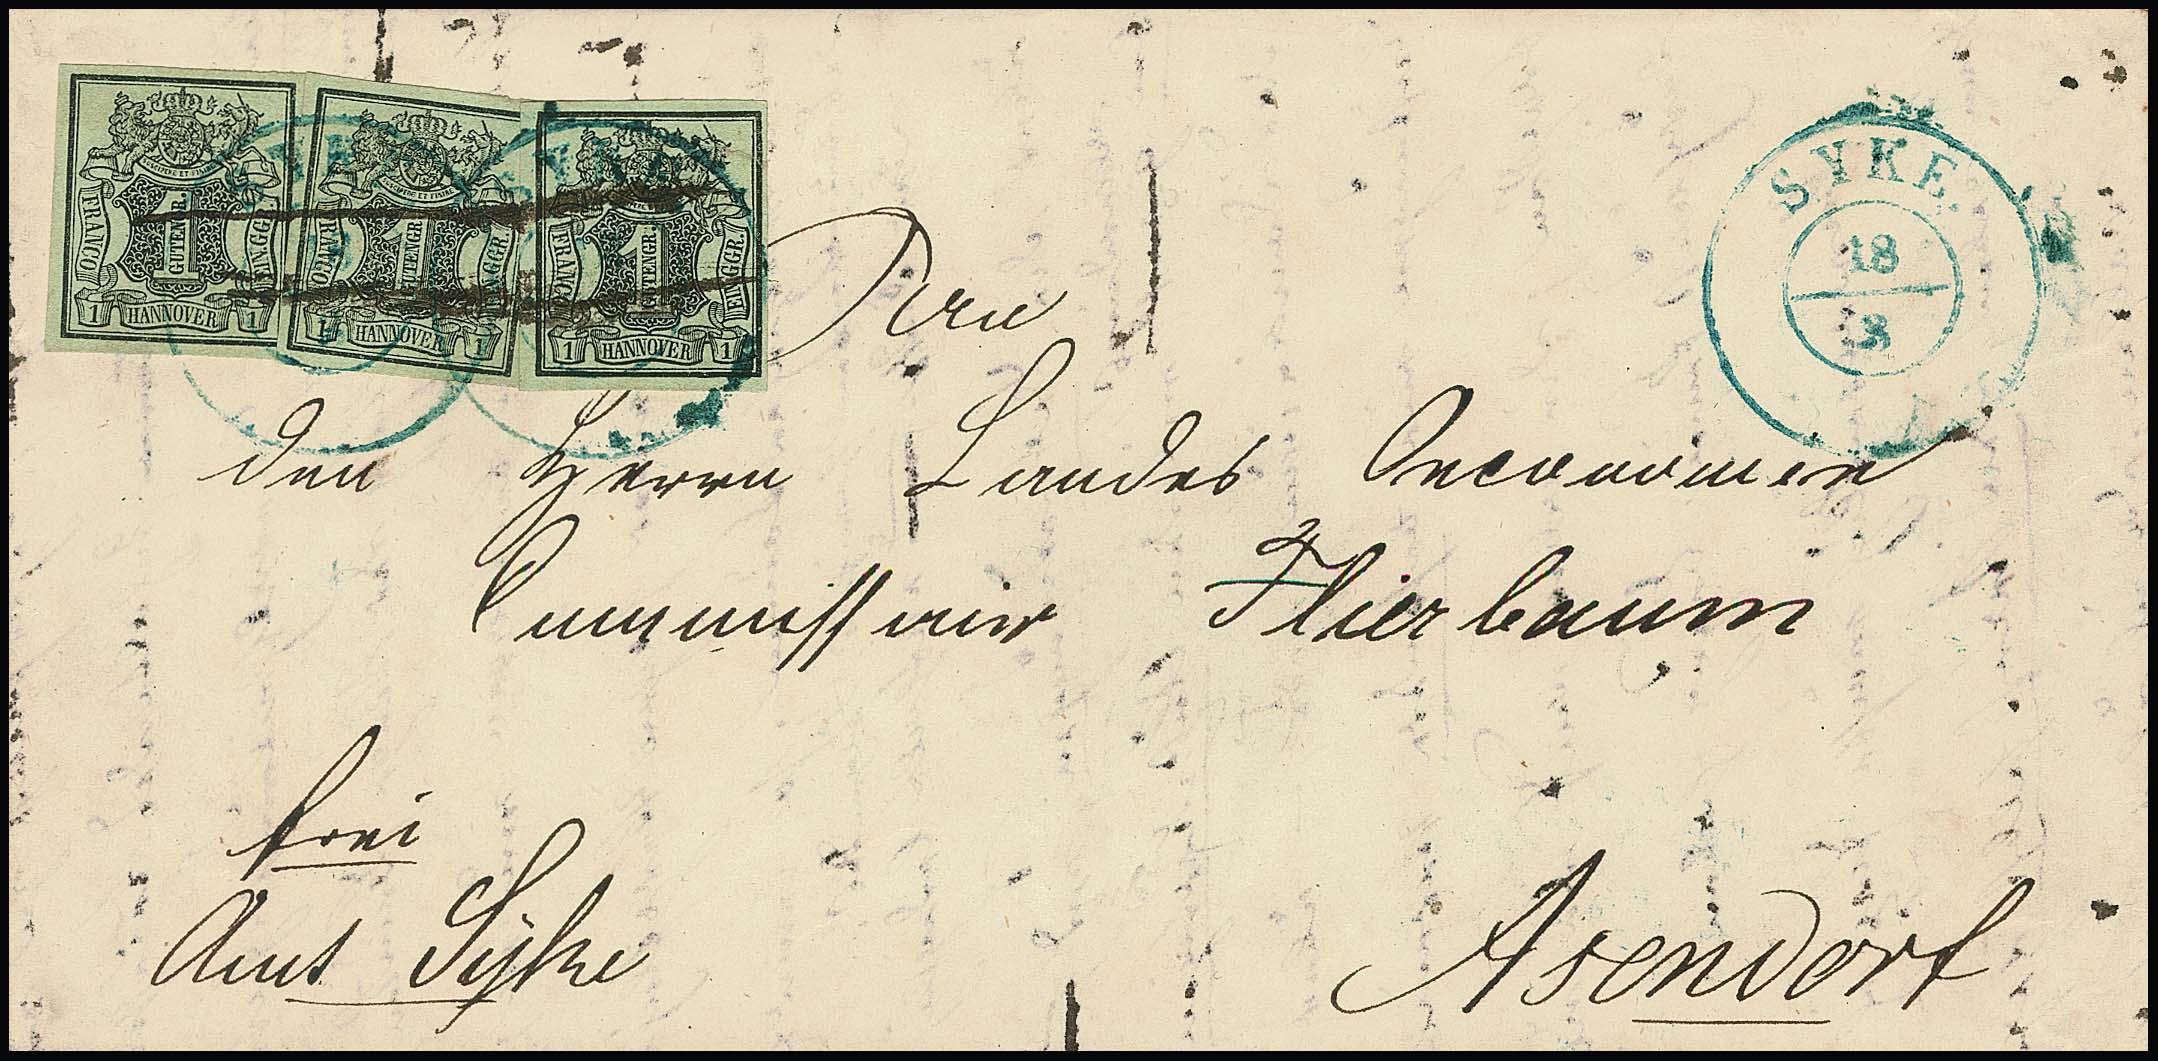 FRANCO
1 GUTENGR.
EIN GGR.
1 HANNOVER 1
FRANCO
1 GUTENGR.
EIN GGR.
1 HANNOVER 1
FRANCO
1 GUTENGR.
EIN GGR.
1 HANNOVER 1
SYKE
18
3
den Herrn Landes Oeconomie
Commissair Flierbaum
frei
Amt Syke
Asendorf